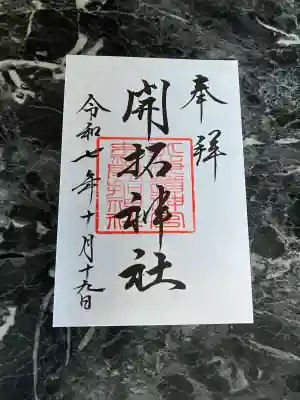 奉拝
開拓神社
令和七年十月十九日